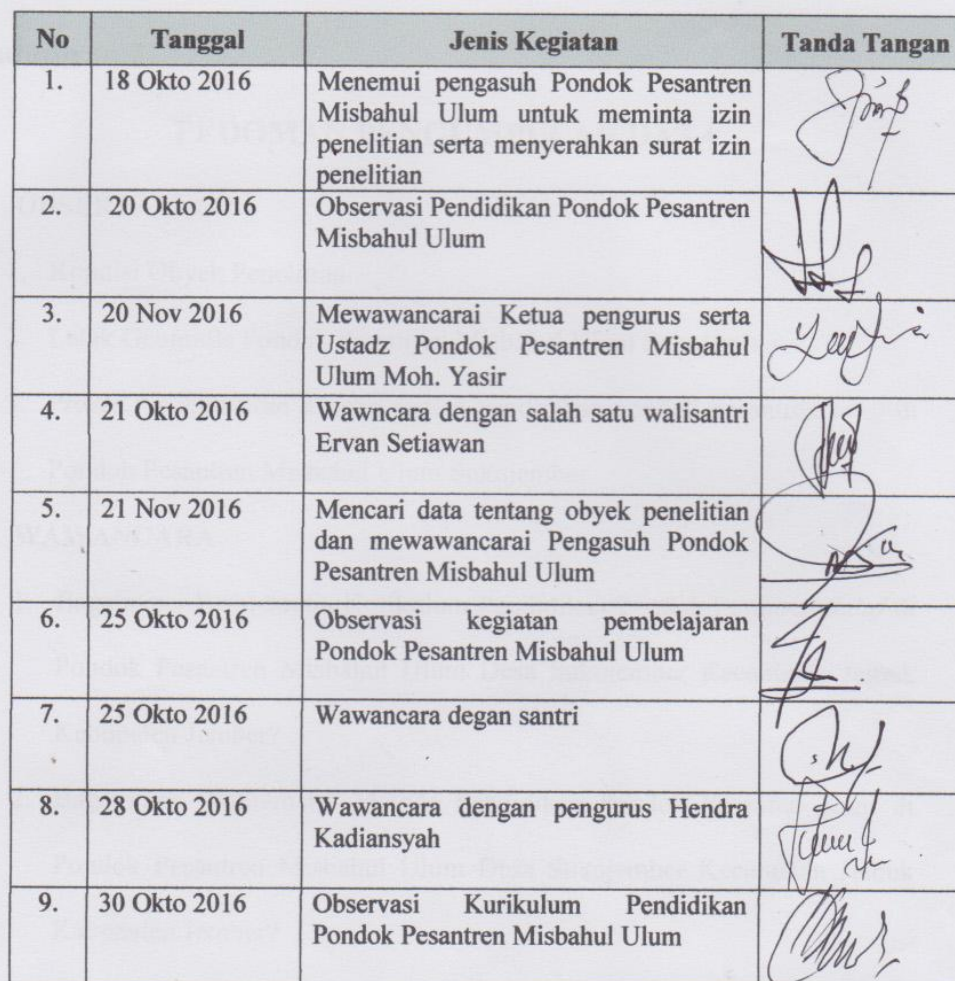 No Tanggal Jenis Kegiatan Tanda Tangan
1. 18 Okto 2016 Menemui pengasuh Pondok Pesantren
Misbahul Ulum untuk meminta izin
penelitian serta menyerahkan surat izin
penelitian
2. 20 Okto 2016 Observasi Pendidikan Pondok Pesantren
Misbahul Ulum
3. 20 Nov 2016 Mewawancarai Ketua pengurus serta
Ustadz Pondok Pesantren Misbahul
Ulum Moh. Yasir
4. 21 Okto 2016 Wawncara dengan salah satu walisantri
Ervan Setiawan
5. 21 Nov 2016 Mencari data tentang obyek penelitian
dan mewawancarai Pengasuh Pondok
Pesantren Misbahul Ulum
6. 25 Okto 2016 Observasi kegiatan pembelajaran
Pondok Pesantren Misbahul Ulum
7. 25 Okto 2016 Wawancara degan santri
8. 28 Okto 2016 Wawancara dengan pengurus Hendra
Kadiansyah
9. 30 Okto 2016 Observasi Kurikulum Pendidikan
Pondok Pesantren Misbahul Ulum